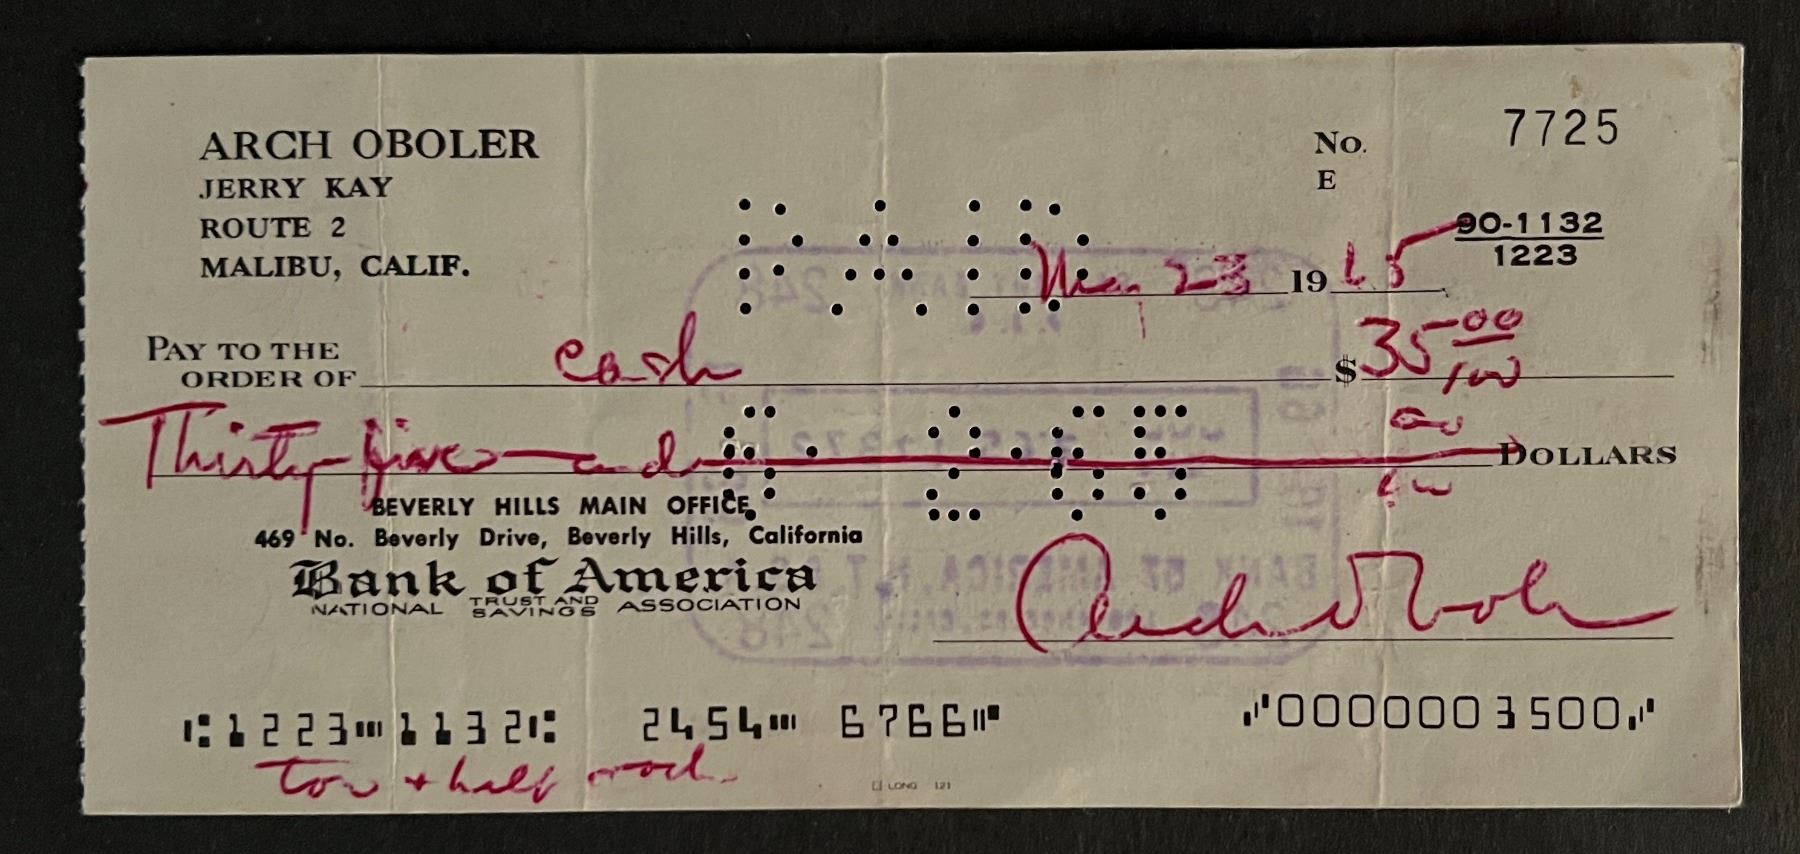 ARCH OBOLER
JERRY KAY
ROUTE 2
MALIBU, CALIF.
No. 7725
E
90-1132
1223
PAID
23 19 65
PAY TO THE
ORDER OF cash $35 00/100
Thirty-five and 00/100 DOLLARS
BEVERLY HILLS MAIN OFFICE
469 No. Beverly Drive, Beverly Hills, California
Bank of America
NATIONAL TRUST AND SAVINGS ASSOCIATION
Arch Oboler
⑆1223⑉1132⑆ 2454⑉ 6766⑈ ⑇0000003500⑇
+ half
LONG 121